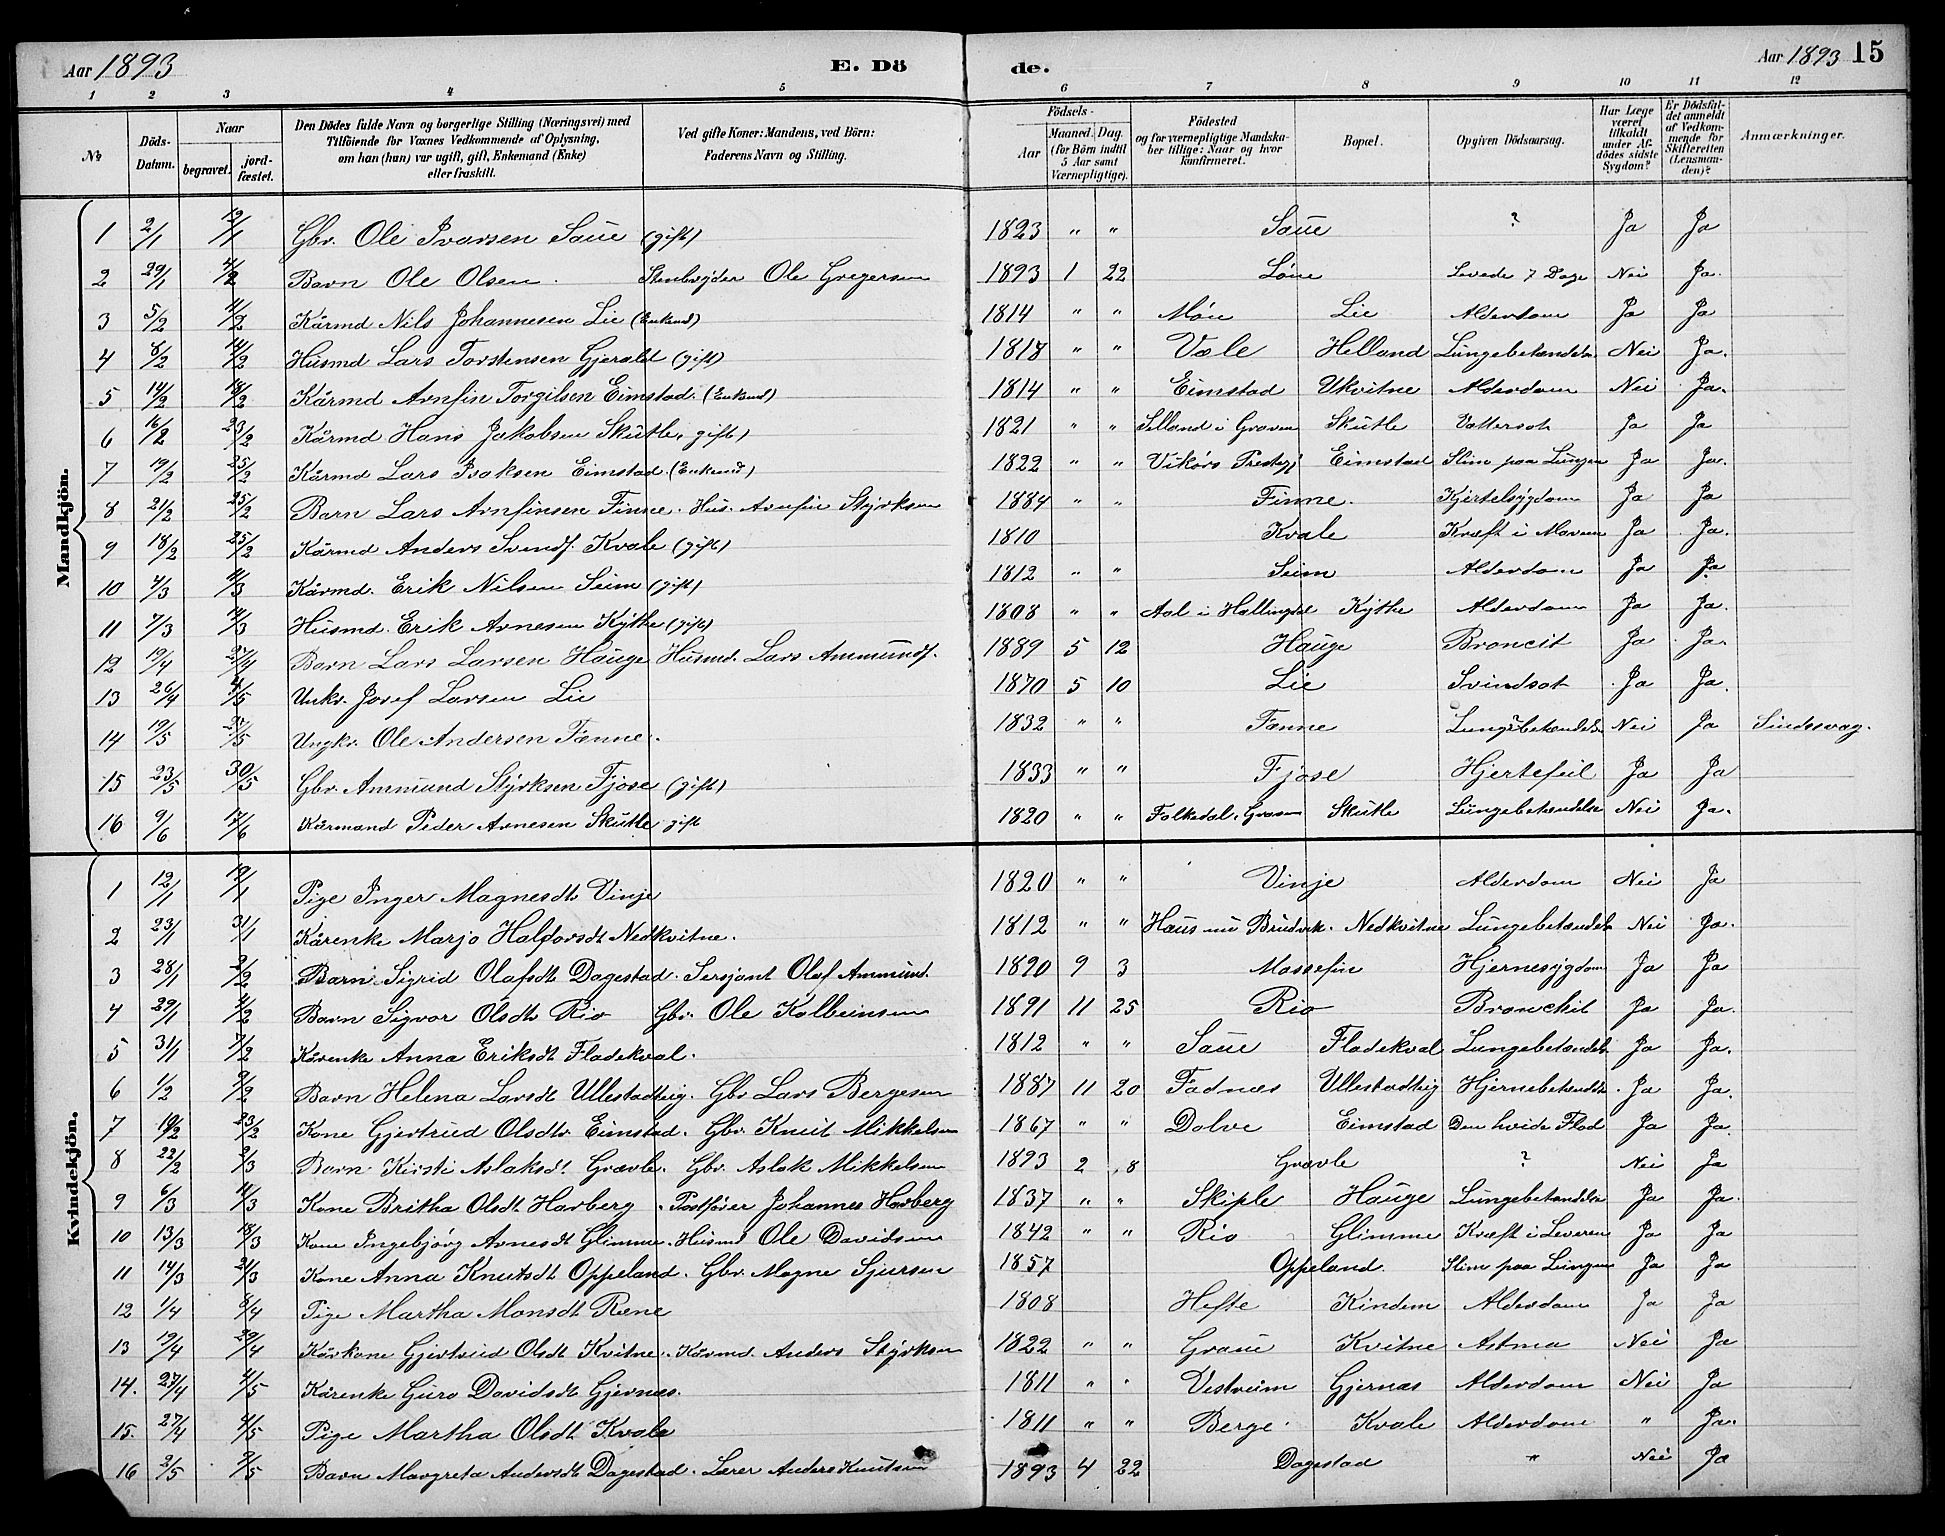 Aar 1893 E. Dö de. Aar 1893 15
1 2 3 4 5 6 7 8 9 10 11 12
No Döds-Datum. Naar begravet. jord-fæstet. Den Dødes fulde Navn og borgerlige Stilling (Næringsvei) med Tilföiende for Voxnes Vedkommende af Oplysning, om han (hun) var ugift, gift, Enkemand (Enke) eller fraskilt. Ved gifte Koner: Mandens, ved Börn: Faderens Navn og Stilling. Födsels- Aar Maaned. Dag. (for Börn indtil 5 Aar samt Værnepligtige). Födested og for værnepligtige Mandskaber tillige: Naar og hvor konfirmeret. Bopæl. Opgiven Dödsaarsag. Har Læge været tilkaldt under Afdödes sidste Sygdom? Er Dödsfaldet anmeldt af Vedkommende for Skifteretten (Lensmanden)? Anmærkninger.
Mandkjön.
1 2/1 12/1 Gbr. Ole Ivarsen Saue (gift) 1823 " " Saue ? Ja Ja
2 29/1 4/2 Barn Ole Olsen. Stenbryder Ole Gregersen 1893 1 22 Lóne Levede 7 Dage Nei Ja.
3 5/2 11/2 Kårmd Nils Johannesen Lie (Enkmd) 1814 " " Móen Lie Alderdom Ja Ja
4 8/2 14/2 Husmd Lars Torstensen Gjerald (gift) 1818 " " Vale Helland Lungebetændelse Nei Ja.
5 14/2 18/2 Kårmd Arnfin Torgilsen Eimstad. (Enkmd) 1814 " " Eimstad Ukvitne Alderdom Nei Ja.
6 16/2 23/2 Kårmd Hans Jakobsen Skutle, gift) 1821 " " Selland i Graven Skutle Vattersot Ja Ja
7 19/2 25/2 Kårmd Lars Isaksen Eimstad (Enkemd) 1822 " " Vikórs Prestegj Eimstad Slim paa Lungen Ja Ja.
8 21/2 25/2 Barn Lars Arnfinsen Finne. Hus. Arnfin Styrksen 1884 " " Finne. Kjertelsygdom Ja Ja
9 18/2 25/2 Kårmd Anders Svendf. Kvale (gift) 1810 Kvale Kræft i Maven Ja Ja.
10 4/3 11/3 Kårmd. Erik Nilsen Seim (gift) 1812 " " Seim Alderdom Ja Ja
11 7/3 14/3 Husmd. Erik Arnesen Kythe (gift) 1808 " " Aal i Hallingdal Kythe Alderdom Ja Ja.
12 19/4 Barn Lars Larsen Hauge Husmd. Lars Ammundf. 1889 5 12 Hauge Broncit Ja Ja.
13 26/4 4/5 Unkr. Josef Larsen Lie 1870 5 10 Lie Svindsot Ja Ja.
14 19/5 Ungkr. Ole Andersen Fanne. 1832 " " Fanne Lungebetændelse Nei Ja Sindssvag.
15 23/5 30/5 Gbr. Ammund Styrksen Fjose (gift) 1833 " " Fjose Hjertefeil Ja Ja
16 9/6 17/6 Kårmand Peder Arnesen Skutle gift 1820 " " Folkedal i Graven Skutle Lungebetændelse Nei Ja.
Kvindekjön.
1 12/1 19/1 Pige Inger Magnesdt Vinje 1820 " " Vinje Alderdom Nei Ja
2 23/1 31/1 Kårenke Marjo Halfovsdt Nedkvitne. 1812 " " Haus nu Bruvik. Nedkvitne Lungebetændelse Nei Ja.
3 28/1 2/2 Barn Sigrid Olafsdt Dagestad. Sersjant Olaf Ammund. 1890 9 3 Mossefin Hjernesygdom Ja Ja
4 29/1 4/2 Barn Sigvor Olsdt Rio Gbr. Ole Kolbeinsen 1891 11 25 Rio Bronchit Ja Ja.
5 31/1 7/2 Kårenke Anna Eriksdt Fladekval. 1812 " " Saue Fladekval Lungebetændelse Ja Ja.
6 1/2 9/2 Barn Helena Larsdt Ullestadteig. Gbr Lars Bergesen 1887 11 20 Fadnæs Ullestadteig Hjernebetændelse Ja Ja.
7 19/2 23/2 Kone Gjertrud Olsdtr Eimstad. Gbr. Knut Mikkelsen 1867 " " Dolve Eimstad Den hvide Flod Ja Ja.
8 22/2 2/3 Barn Kirsti Aslaksdt Gravle. Gbr. Aslak Mikkelsen 1893 2 8 Gravle ? Nei Ja
9 6/3 11/3 Kone Britha Olsdt Havberg. Postfører Johannes Havberg 1837 " " Skiple Hauge Lungebetændelse Ja Ja.
10 13/3 18/3 Kone Ingebjörg Arnesdt Glimme. Husmd Ole Davidsen 1842 " " Rio Glimme Kræft i Leveren Ja Ja
11 14/3 21/3 Kone Anna Knutsdt Oppeland. Gbr. Magne Sjursen 1857 Oppeland. Slim paa Lungen Ja Ja
12 1/4 8/4 Pige Martha Monsdt Rene 1808 Hefte Kindem Alderdom Ja Ja
13 19/4 29/4 Kårkone Gjertrud Olsdt Kvitne. Kårmd. Anders Styrksen 1822 " " Graue Kvitne Astma Nei Ja
14. 27/4 4/5 Kårenke Guro Davidsdt Gjernæs. 1811 " " Vestreim Gjernæs Alderdom Nei Ja
15. 27/4 4/5 Pige Martha Olsdt Kvale 1811 " " Berge Kvale Alderdom " Ja.
16 2/5 9/5 Barn Margreta Andersdt Dagestad. Lærer Anders Knutsen 1893 4 22 Dagestad " Nei Ja